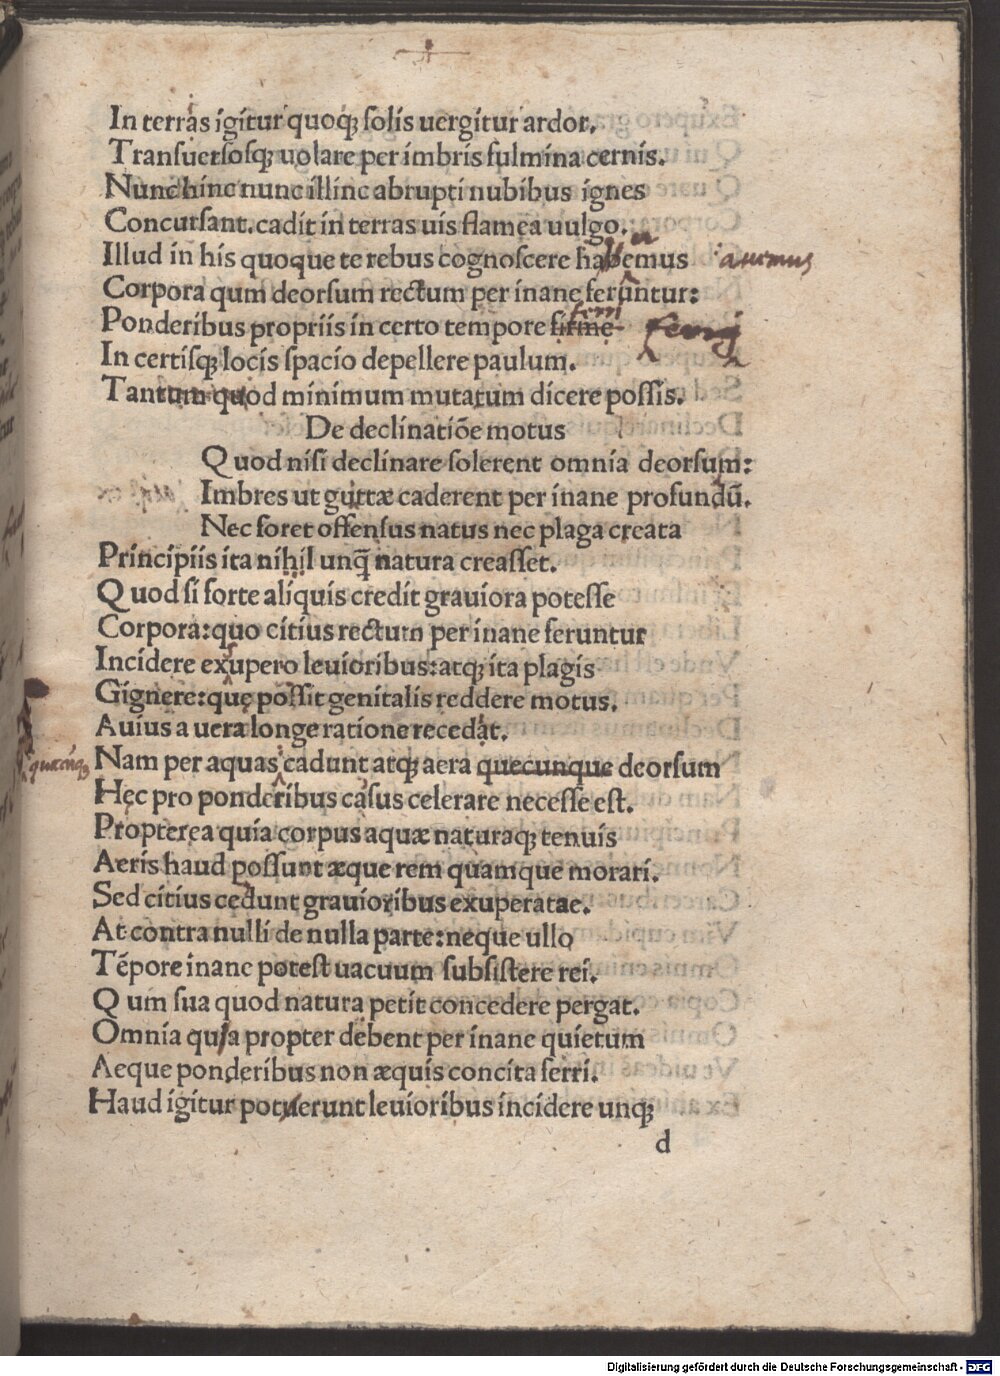 In terras igitur quoq; solis uergitur ardor.
Transuersosq; uolare per imbris fulmina cernis.
Nunc hinc nunc illinc abrupti nubibus ignes
Concursant. cadit in terras uis flamea uulgo.
Illud in his quoque te rebus cognoscere habemus auemus
Corpora qum deorsum rectum per inane feruntur:
Ponderibus propriis in certo tempore firme ferme
In certisq; locis spacio depellere paulum.
Tantum quod minimum mutatum dicere possis.
De declinatiōe motus
Quod nisi declinare solerent omnia deorsum:
Imbres ut guttæ caderent per inane profundū.
Nec foret offensus natus nec plaga creata
Principiis ita nihil unq̃ natura creasset.
Quod si forte aliquis credit grauiora potesse
Corpora: quo citius rectum per inane feruntur
Incidere exupero leuioribus: atq; ita plagis
Gignere: quę possit genitalis reddere motus.
Auius a uera longe ratione recedat.
Nam per aquas cadunt atq; aera quecunque deorsum
Hęc pro ponderibus casus celerare necesse est.
Propterea quia corpus aquæ naturaq; tenuis
Aeris haud possunt æque rem quamque morari.
Sed citius cedunt grauioribus exuperatae.
At contra nulli de nulla parte: neque ullo
Tēpore inane potest uacuum subsistere rei.
Qum sua quod natura petit concedere pergat.
Omnia quia propter debent per inane quietum
Aeque ponderibus non æquis concita ferri.
Haud igitur potuerunt leuioribus incidere unq;
d
Digitalisierung gefördert durch die Deutsche Forschungsgemeinschaft - DFG